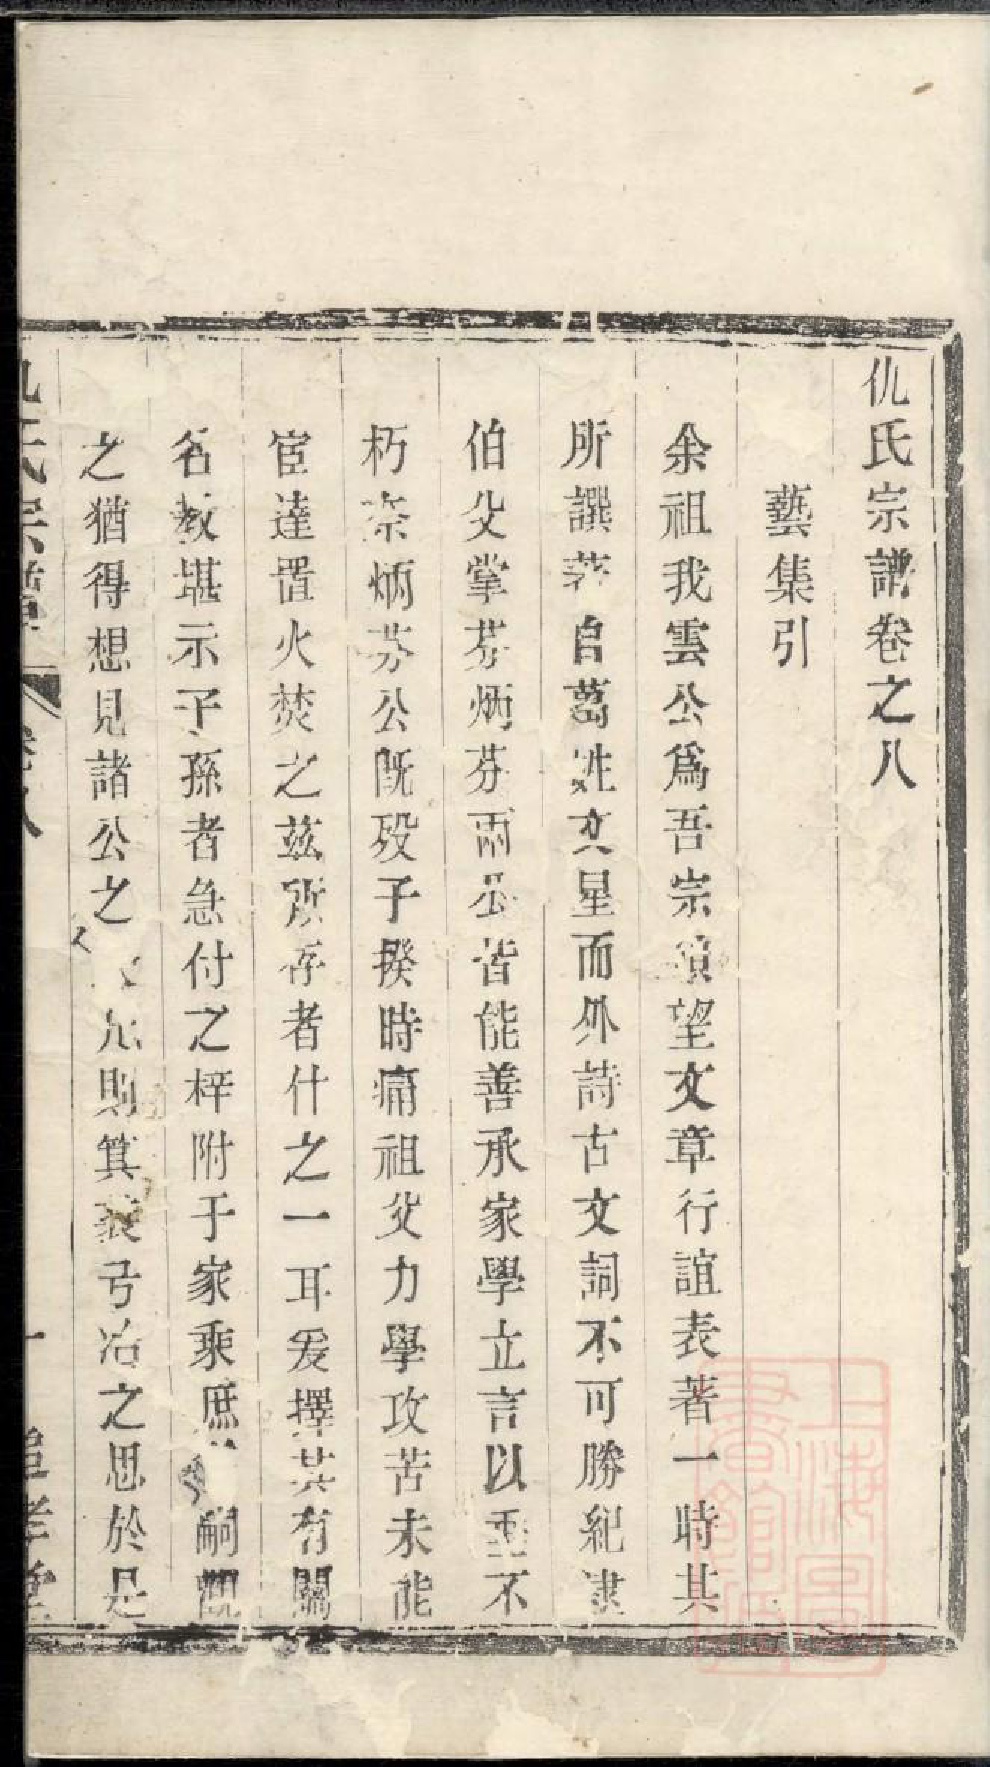 仇氏宗譜卷之八
藝集引
余祖我雲公爲吾宗碩望文章行誼表著一時其
所譔著自萬姓文星而外詩古文詞不可勝紀逮
伯父掌芬炳芬兩公皆能善承家學立言以垂不
朽奈炳芬公旣歿子揆時痛祖父力學攻苦未能
宦達置火焚之茲所存者什之一耳爰擇其有關
名教堪示子孫者急付之梓附于家乘庶嗣觀
之猶得想見諸公之則箕裘弓冶之思於是
仇氏宗譜
卷八
一
追孝堂
上海圖書館藏